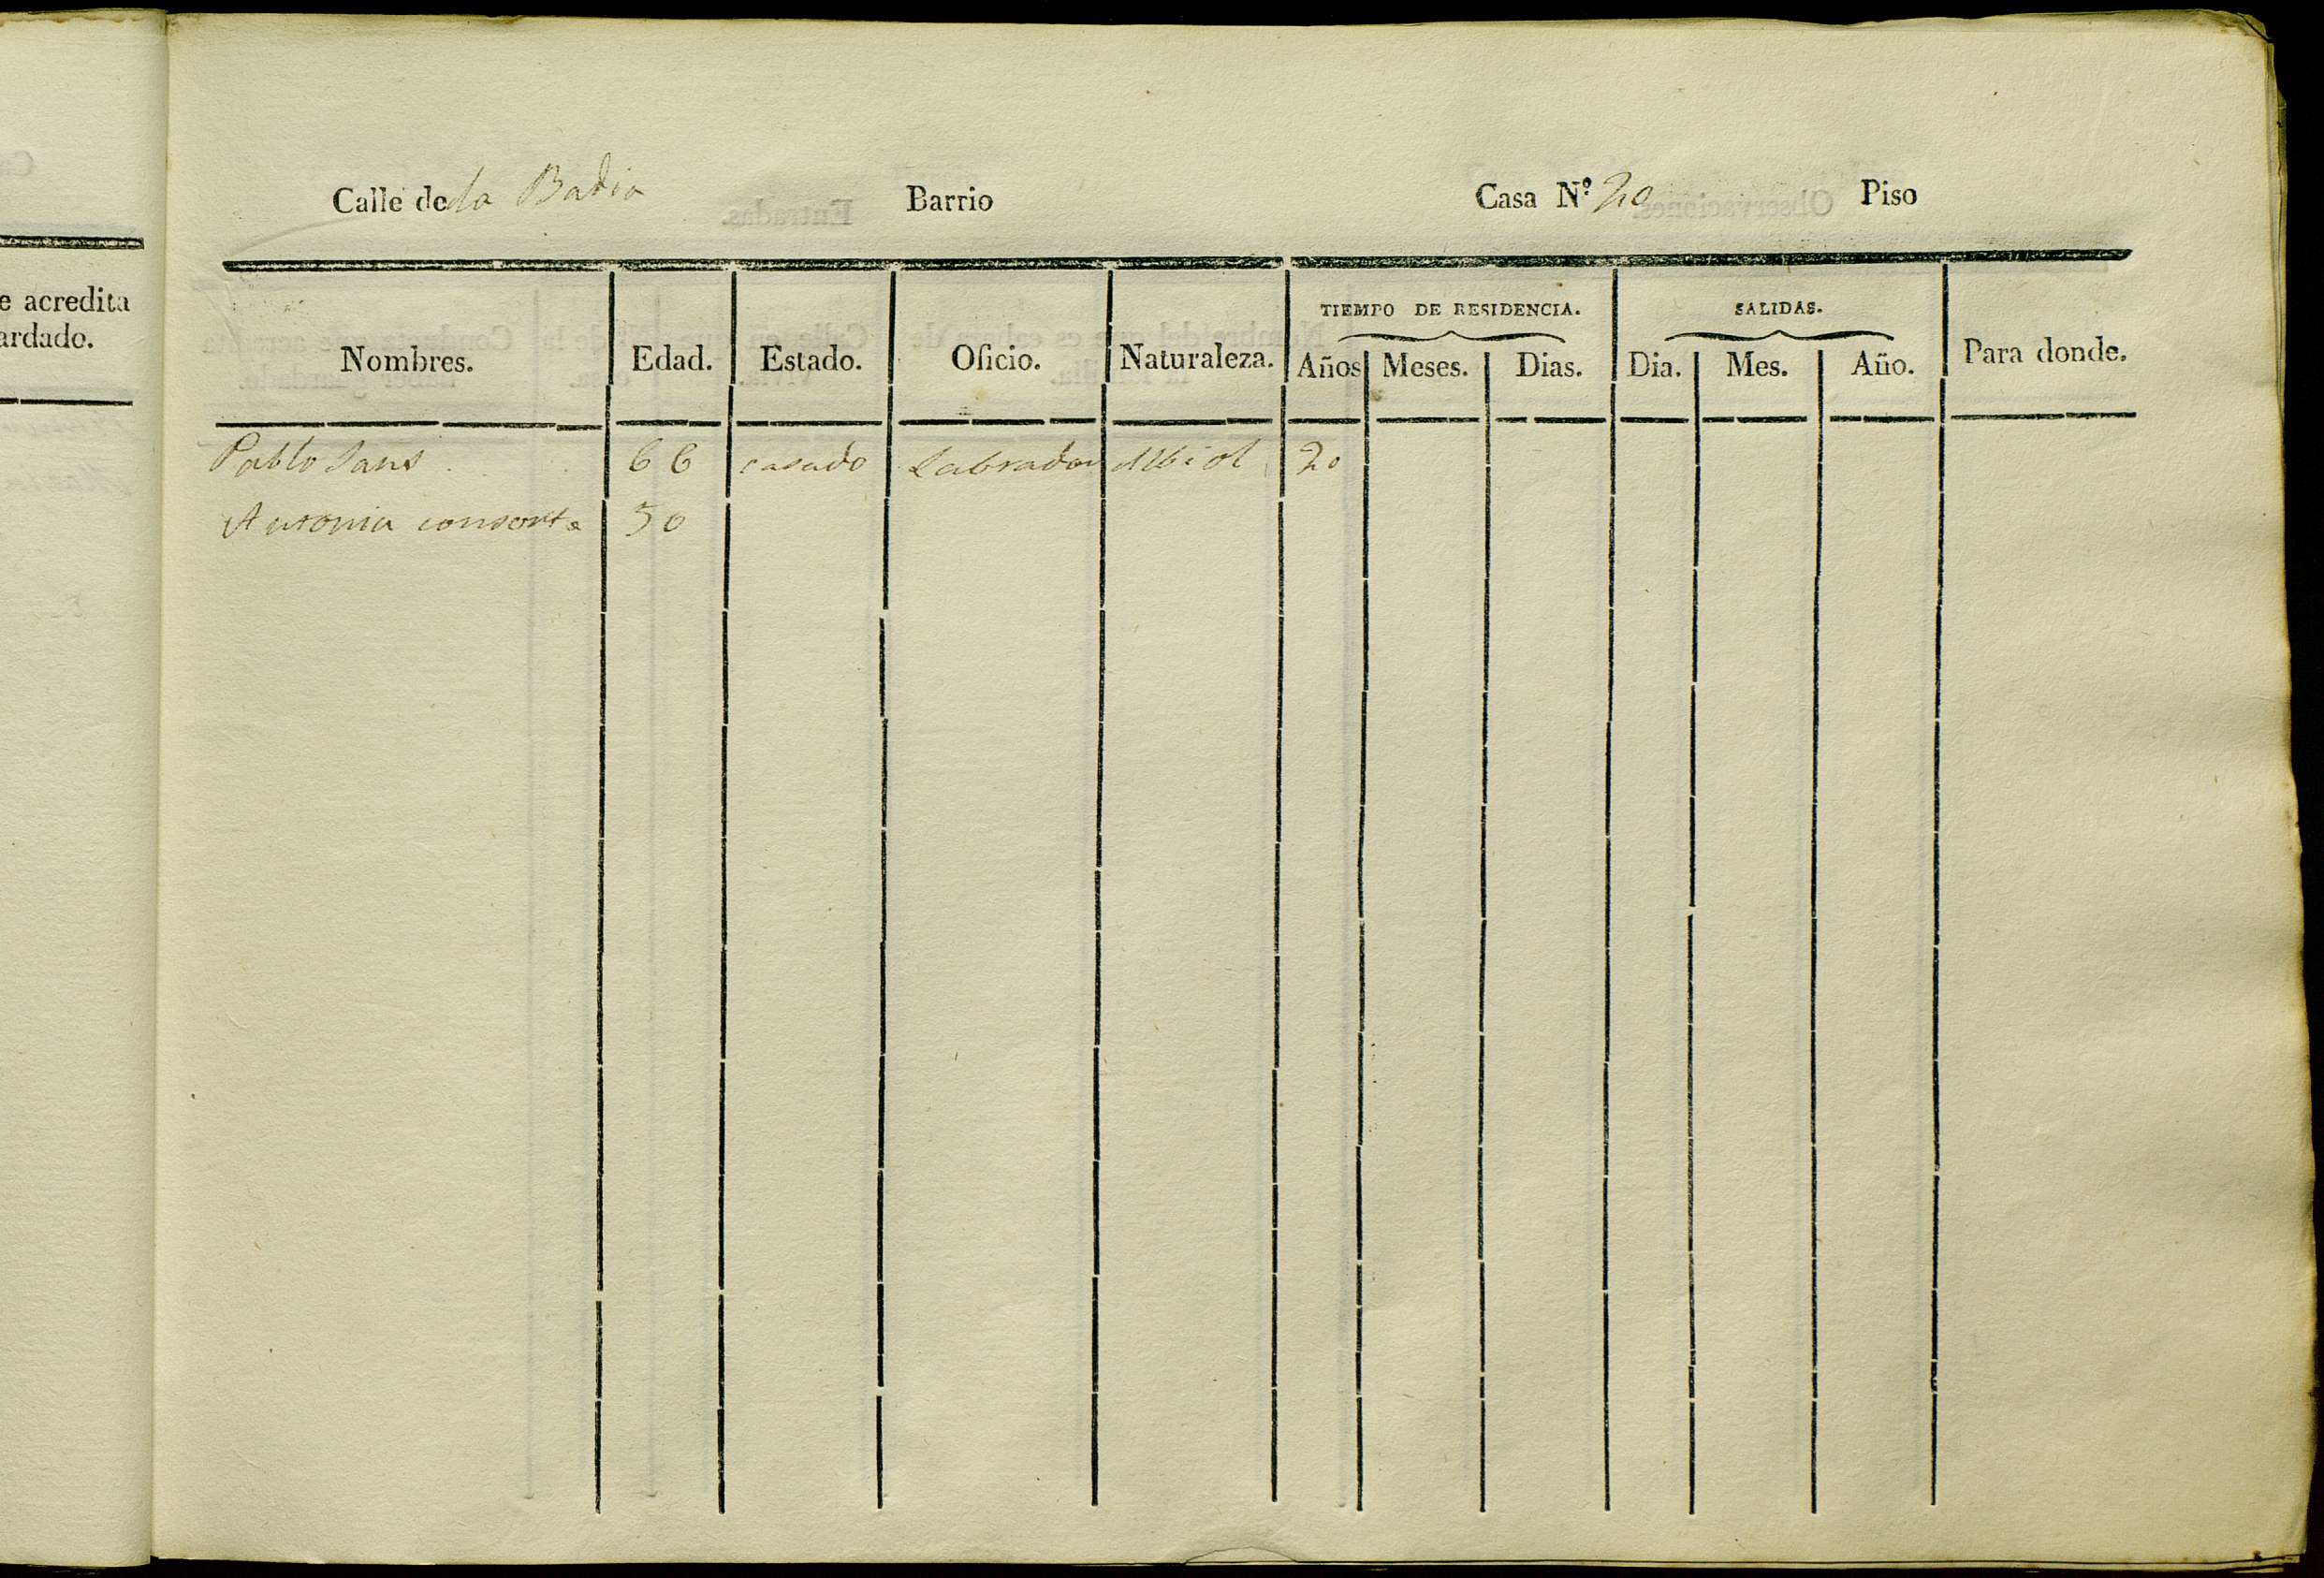 e acredita
ardado.
Calle de la Badia Barrio Casa N.º 20 Piso
TIEMPO DE RESIDENCIA. SALIDAS.
Nombres. Edad. Estado. Oficio. Naturaleza. Años Meses. Dias. Dia. Mes. Año. Para donde.
Pablo Sans 66 casado Labrador Albiol 20
Antonia consorte 50